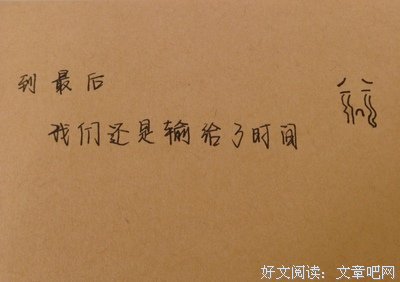 到最后
我们还是输给了时间
好文阅读：文章吧网